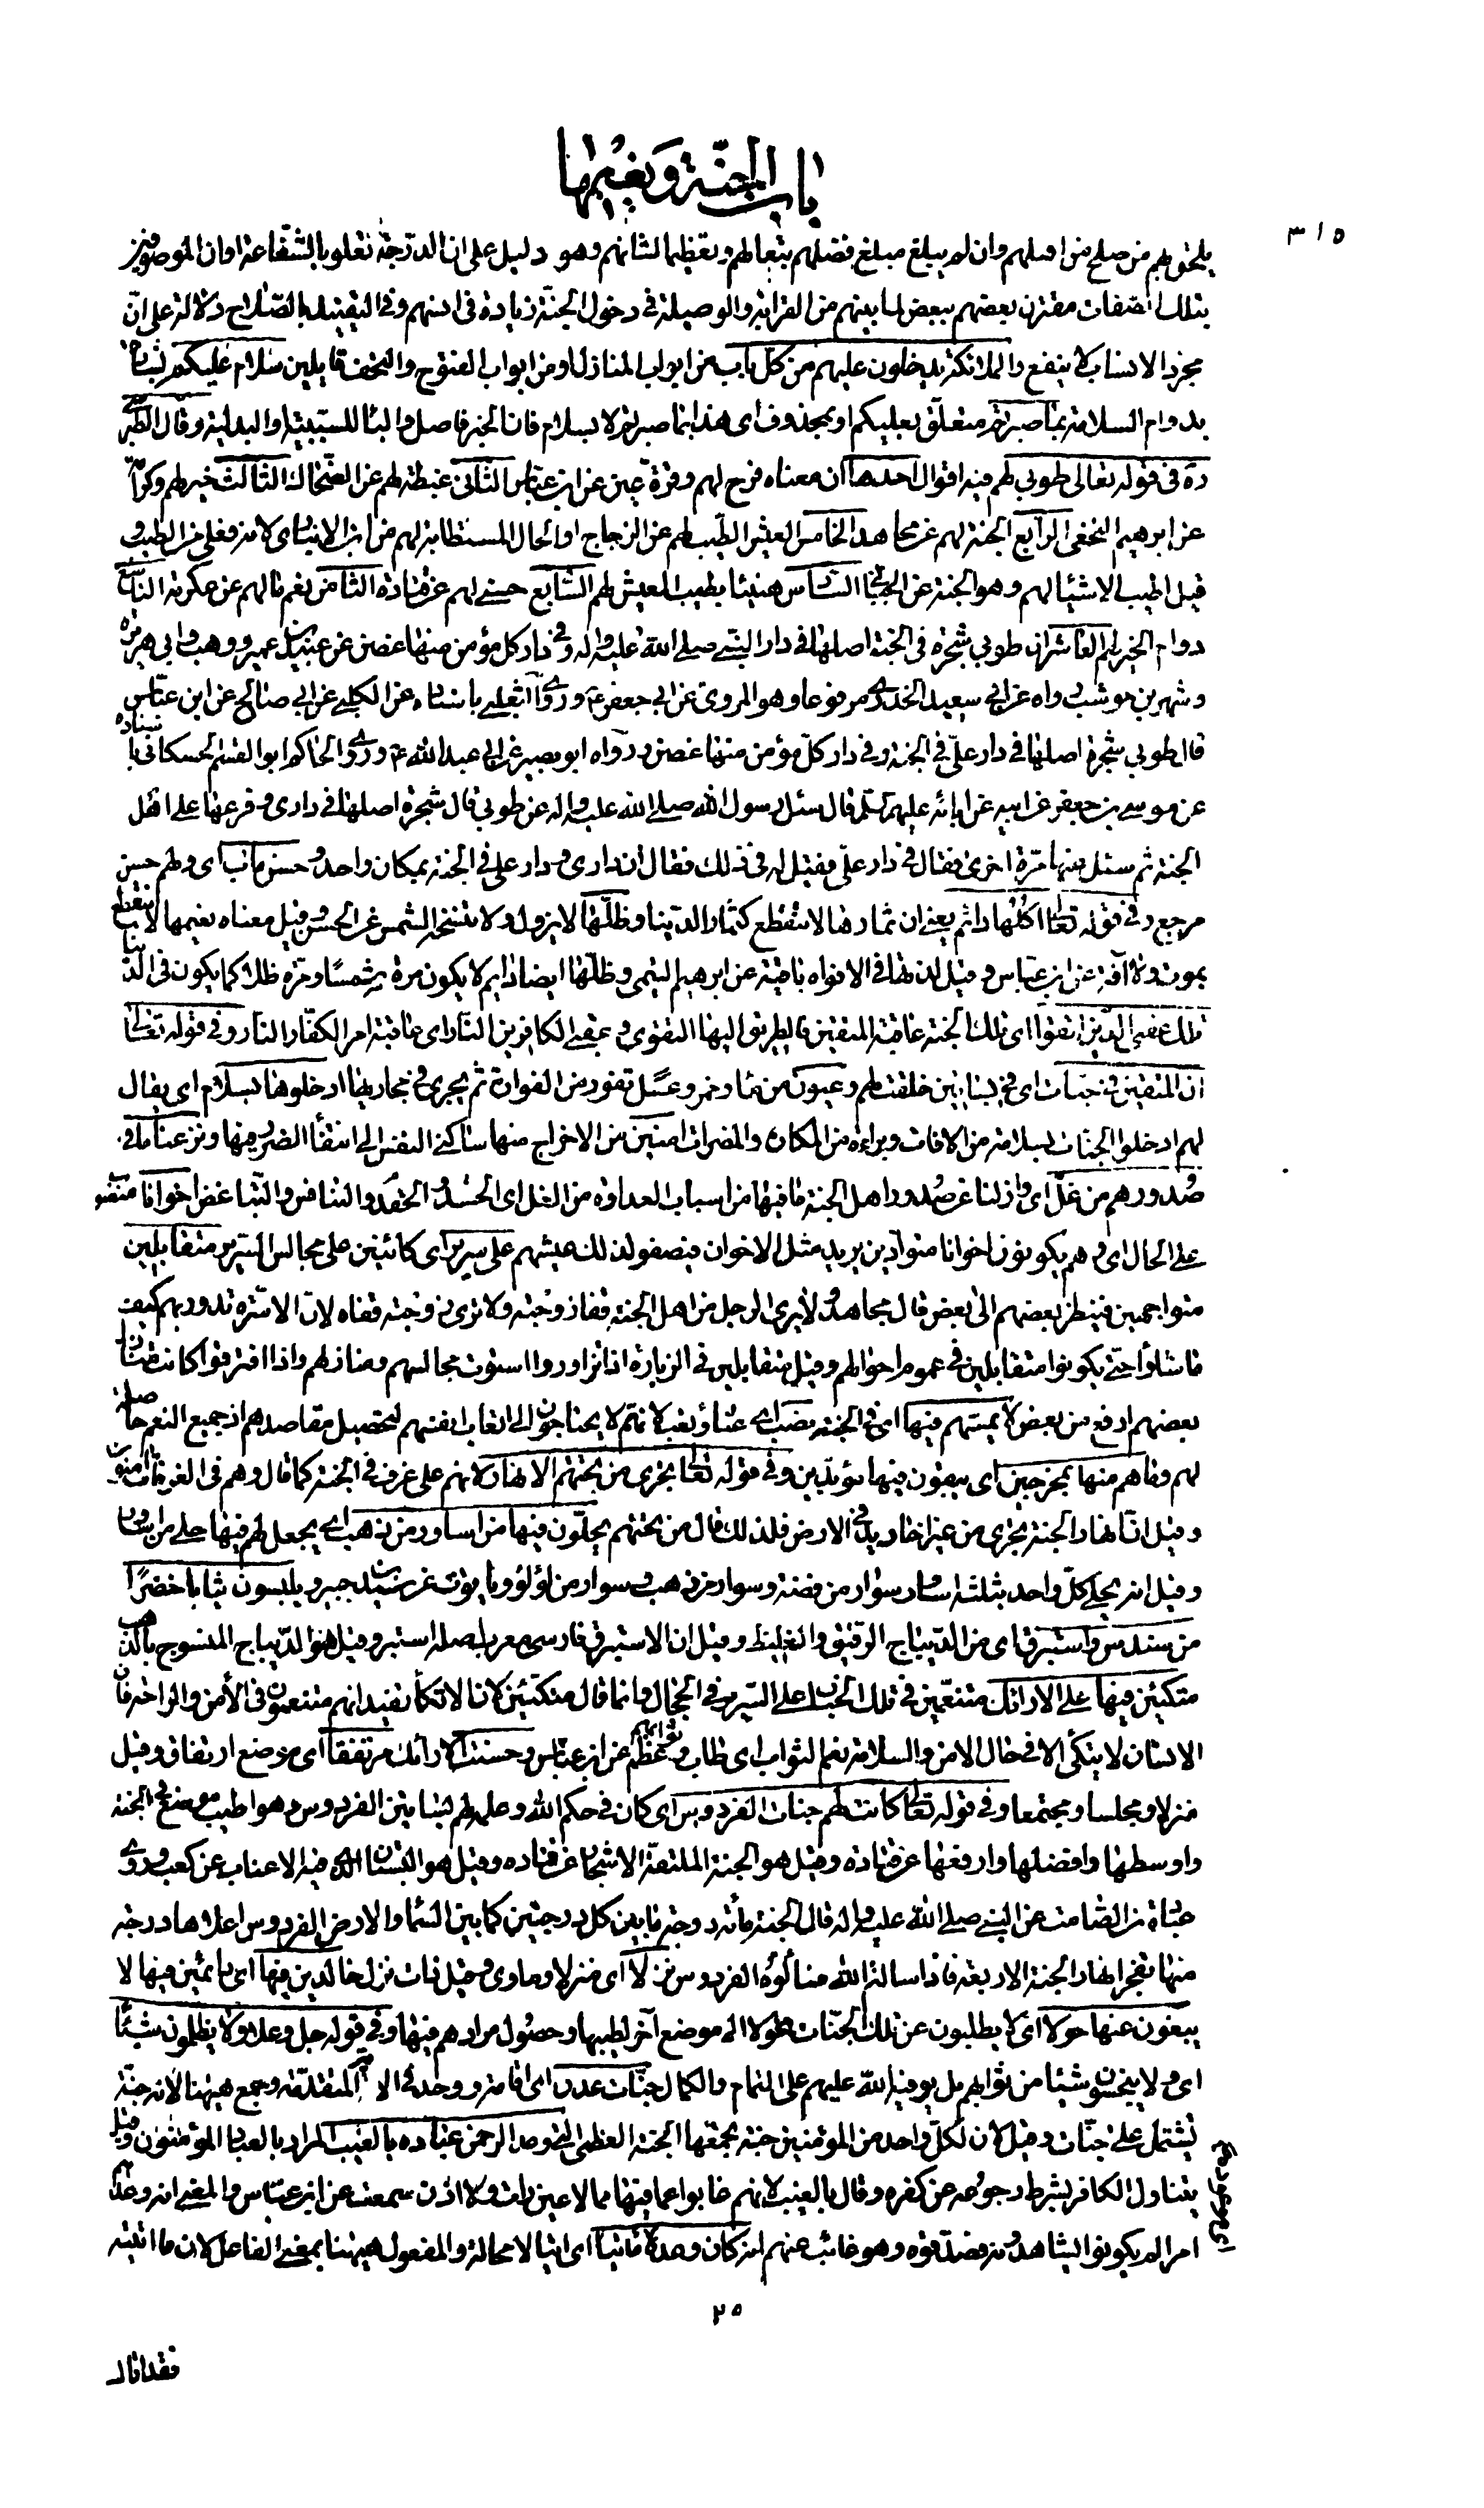 ٣١٥
باب الجنة ونعيمها
يلحق بهم من صلح من اهلهم وان لم يبلغ مبلغ فضلهم تبعا لهم وتعظيما لشانهم وهو دليل على ان الدرجة تعلو بالشفاعة او ان الموصوفين
بتلك الصفات مقترن بعضهم ببعض لما بينهم من القرابة والوصيلة فى دخول الجنة زيادة فى انسهم وفى التقييد بالصلاح دلالة على ان
مجرد الانساب لا ينفع والملائكة يدخلون عليهم من كل باب من ابواب المنازل او من ابواب الفتوح والتحف قايلين سلام عليكم بشارة
بدوام السلامة بما صبرتم متعلق بعليكم او بمحذوف اى هذا بما صبرتم لا بسلام فان الخبر فاصل والبا للسببية او البدلية وقال الطبرسى
ره فى قوله تعالى طوبى لهم فيه اقوال احدها ان معناه فرح لهم وقرة عين عن ابن عباس الثانى غبطة لهم عن الضحاك الثالث خير لهم وكرامة
عن ابرهيم النخعى الرابع الجنة لهم عن مجاهد الخامس العيش الطيب لهم عن الزجاج او الحال المستطابة لهم عن ابن الانبارى لانه فعلى من الطيب و
قيل اطيب الاشيا لهم وهو الجنة عن الجبائى السادس هنيئا بطيب العيش لهم السابع حسنى لهم عن قتادة الثامن نعم ما لهم عن عكرمة التاسع
دوام الخير لهم العاشر ان طوبى شجرة فى الجنة اصلها فى دار النبى صلى الله عليه واله وفى دار كل مؤمن منها غصن عن عبيد بن عمير ووهب وابى هريرة
وشهر بن حوشب ورواه عن ابى سعيد الخدرى مرفوعا وهو المروى عن ابى جعفر ع وروى الثعلبى باسناده عن الكلبى عن ابى صالح عن ابن عباس
قال طوبى شجرة اصلها فى دار على فى الجنة وفى دار كل مؤمن منها غصن ورواه ابو بصير عن ابى عبد الله ع وروى الحاكم ابو القسم الحسكانى باسناده
عن موسى بن جعفر عن ابيه عن ابائه عليهم السلم قال سئل رسول الله صلى الله عليه واله عن طوبى قال شجرة اصلها فى دارى وفرعها على اهل
الجنة ثم سئل عنها مرة اخرى فقال فى دار على فقيل له فى ذلك فقال ان دارى ودار على فى الجنة بمكان واحد وحسن ماب اى ولهم حسن
مرجع وفى قوله تعالى اكلها دائم يعنى ان ثمارها لا تنقطع كثمار الدنيا وظلها لا يزول ولا تنسخه الشمس عن الحسن وقيل معناه نعيمها لا ينقطع
بموت ولا آفة عن ابن عباس وقيل لذتها فى الافواه باقية عن ابرهيم التيمى وظلها ايضا دايم لا يكون مرة شمسا ومرة ظلا كما يكون فى الدنيا
تلك عقبى الذين اتقوا اى تلك الجنة عاقبة المتقين فالطريق اليها التقوى وعقبى الكافرين النار اى عاقبة امر الكفار النار وفى قوله تعالى
ان المتقين فى جنات اى فى بساتين خلقت لهم وعيون من ماء وخمر وعسل تفور من الفوارة ثم يجرى فى مجاريها ادخلوها بسلام اى يقال
لهم ادخلوا الجنات بسلامة من الافات وبراءة من المكاره والمضرات امنين من الاخراج منها ساكنى النفس الى انتفاء الضرر فيها ونزعنا ما فى
صدورهم من غل اى وازلنا عن صدور اهل الجنة ما فيها من اسباب العداوة من الغل اى الحسد والحقد والتنافس والتباغض اخوانا منصوب
على الحال اى وهم يكونون اخوانا متوادين يريد مثل الاخوان فيصفو لذلك عيشهم على سرر اى كائنين على مجالس السرير متقابلين
متواجهين فينظر بعضهم الى بعض قال مجاهد لا يرى الرجل من اهل الجنة قفا زوجته ولا ترى زوجته قفاه لان الاسرة تدور بهم كيف
ما شاؤا حتى يكونوا متقابلين فى عموم احوالهم وقيل متقابلين فى الزيارة اذا تزاوروا استوت مجالسهم ومنازلهم واذا افترقوا كانت منازل
بعضهم ارفع من بعض لا يمسهم فيها اى فى الجنة نصب اى عناء وتعب لانهم لا يحتاجون الى اتعاب انفسهم لتحصيل مقاصدهم اذ جميع النعم حاصلة
لهم وما هم منها بمخرجين اى يبقون فيها مؤبدين وفى قوله تعالى تجرى من تحتهم الانهار لانهم على غرف فى الجنة كما قال وهم فى الغرفات امنون
وقيل ان انهار الجنة تجرى من غير اخاديد فى الارض فلذلك قال من تحتهم يحلون فيها من اساور من ذهب اى يجعل لهم فيها حلى من اساور
وقيل انه يحلى كل واحد بثلثة اساور سوار من فضة وسوار من ذهب وسوار من لؤلؤ وياقوت عن سعيد بن جبير ويلبسون ثيابا خضرا
من سندس واستبرق اى من الديباج الرقيق والغليظ وقيل ان الاستبرق فارسى معرب اصله استبر وقيل هو الديباج المنسوج بالذهب
متكئين فيها على الارائك متنعمين فى تلك الجنان على السرر فى الحجال وانما قال متكئين لان الاتكاء يفيد انهم متنعمون فى الأمن والراحة فان
الانسان لا يتكى الا فى حال الامن والسلامة نعم الثواب اى طاب ثوابهم وعظم عن ابن عباس وحسنت الارائك مرتفقا اى موضع ارتفاق وقيل
منزلا ومجلسا ومجتمعا وفى قوله تعالى كانت لهم جنات الفردوس اى كان فى حكم الله وعلمه لهم بساتين الفردوس وهو اطيب موضع فى الجنة
واوسطها وافضلها وارفعها عن قتادة وقيل هو الجنة الملتفة الاشجار عن قتاده وقيل هو البستان الذى فيه الاعناب عن كعب وروى
عبادة بن الصامت عن النبى صلى الله عليه واله قال الجنة مأئة درجة ما بين كل درجتين كما بين السماء والارض الفردوس اعلاها درجة
منها تفجر انهار الجنة الاربعة فاذا سالتم الله فاسألوه الفردوس نزلا اى منزلا وماوى وقيل ذات نزل خالدين فيها اى دائمين فيها لا
يبغون عنها حولا اى لا يطلبون عن تلك الجنات تحولا الى موضع آخر لطيبها وحصول مرادهم فيها وفى قوله جل وعلا ولا يظلمون شيئا
اى ولا يبخسون شيئا من ثوابهم بل يوفيه الله عليهم على التمام والكمال جنات عدن اى اقامة ووحد فى الاية المتقدمة وجمع هيهنا لانه جنة
تشتمل على جنات وقيل لان لكل واحد من المؤمنين جنة تجمعها الجنة العظمى التى وعد الرحمن عباده بالغيب المراد بالعباد المؤمنون وقيل
يتناول الكافر بشرط رجوعه عن كفره وقال بالغيب لانهم غابوا عما فيها مما لا عين رات ولا اذن سمعت عن ابن عباس والمعنى انه وعدهم
امرا لم يكونوا يشاهدونه فصدقوه وهو غائب عنهم انه كان وعده مأتيا اى اتيا لا محالة والمفعول هيهنا بمعنى الفاعل لان ما اتيته
٢٥
فقد اتاك